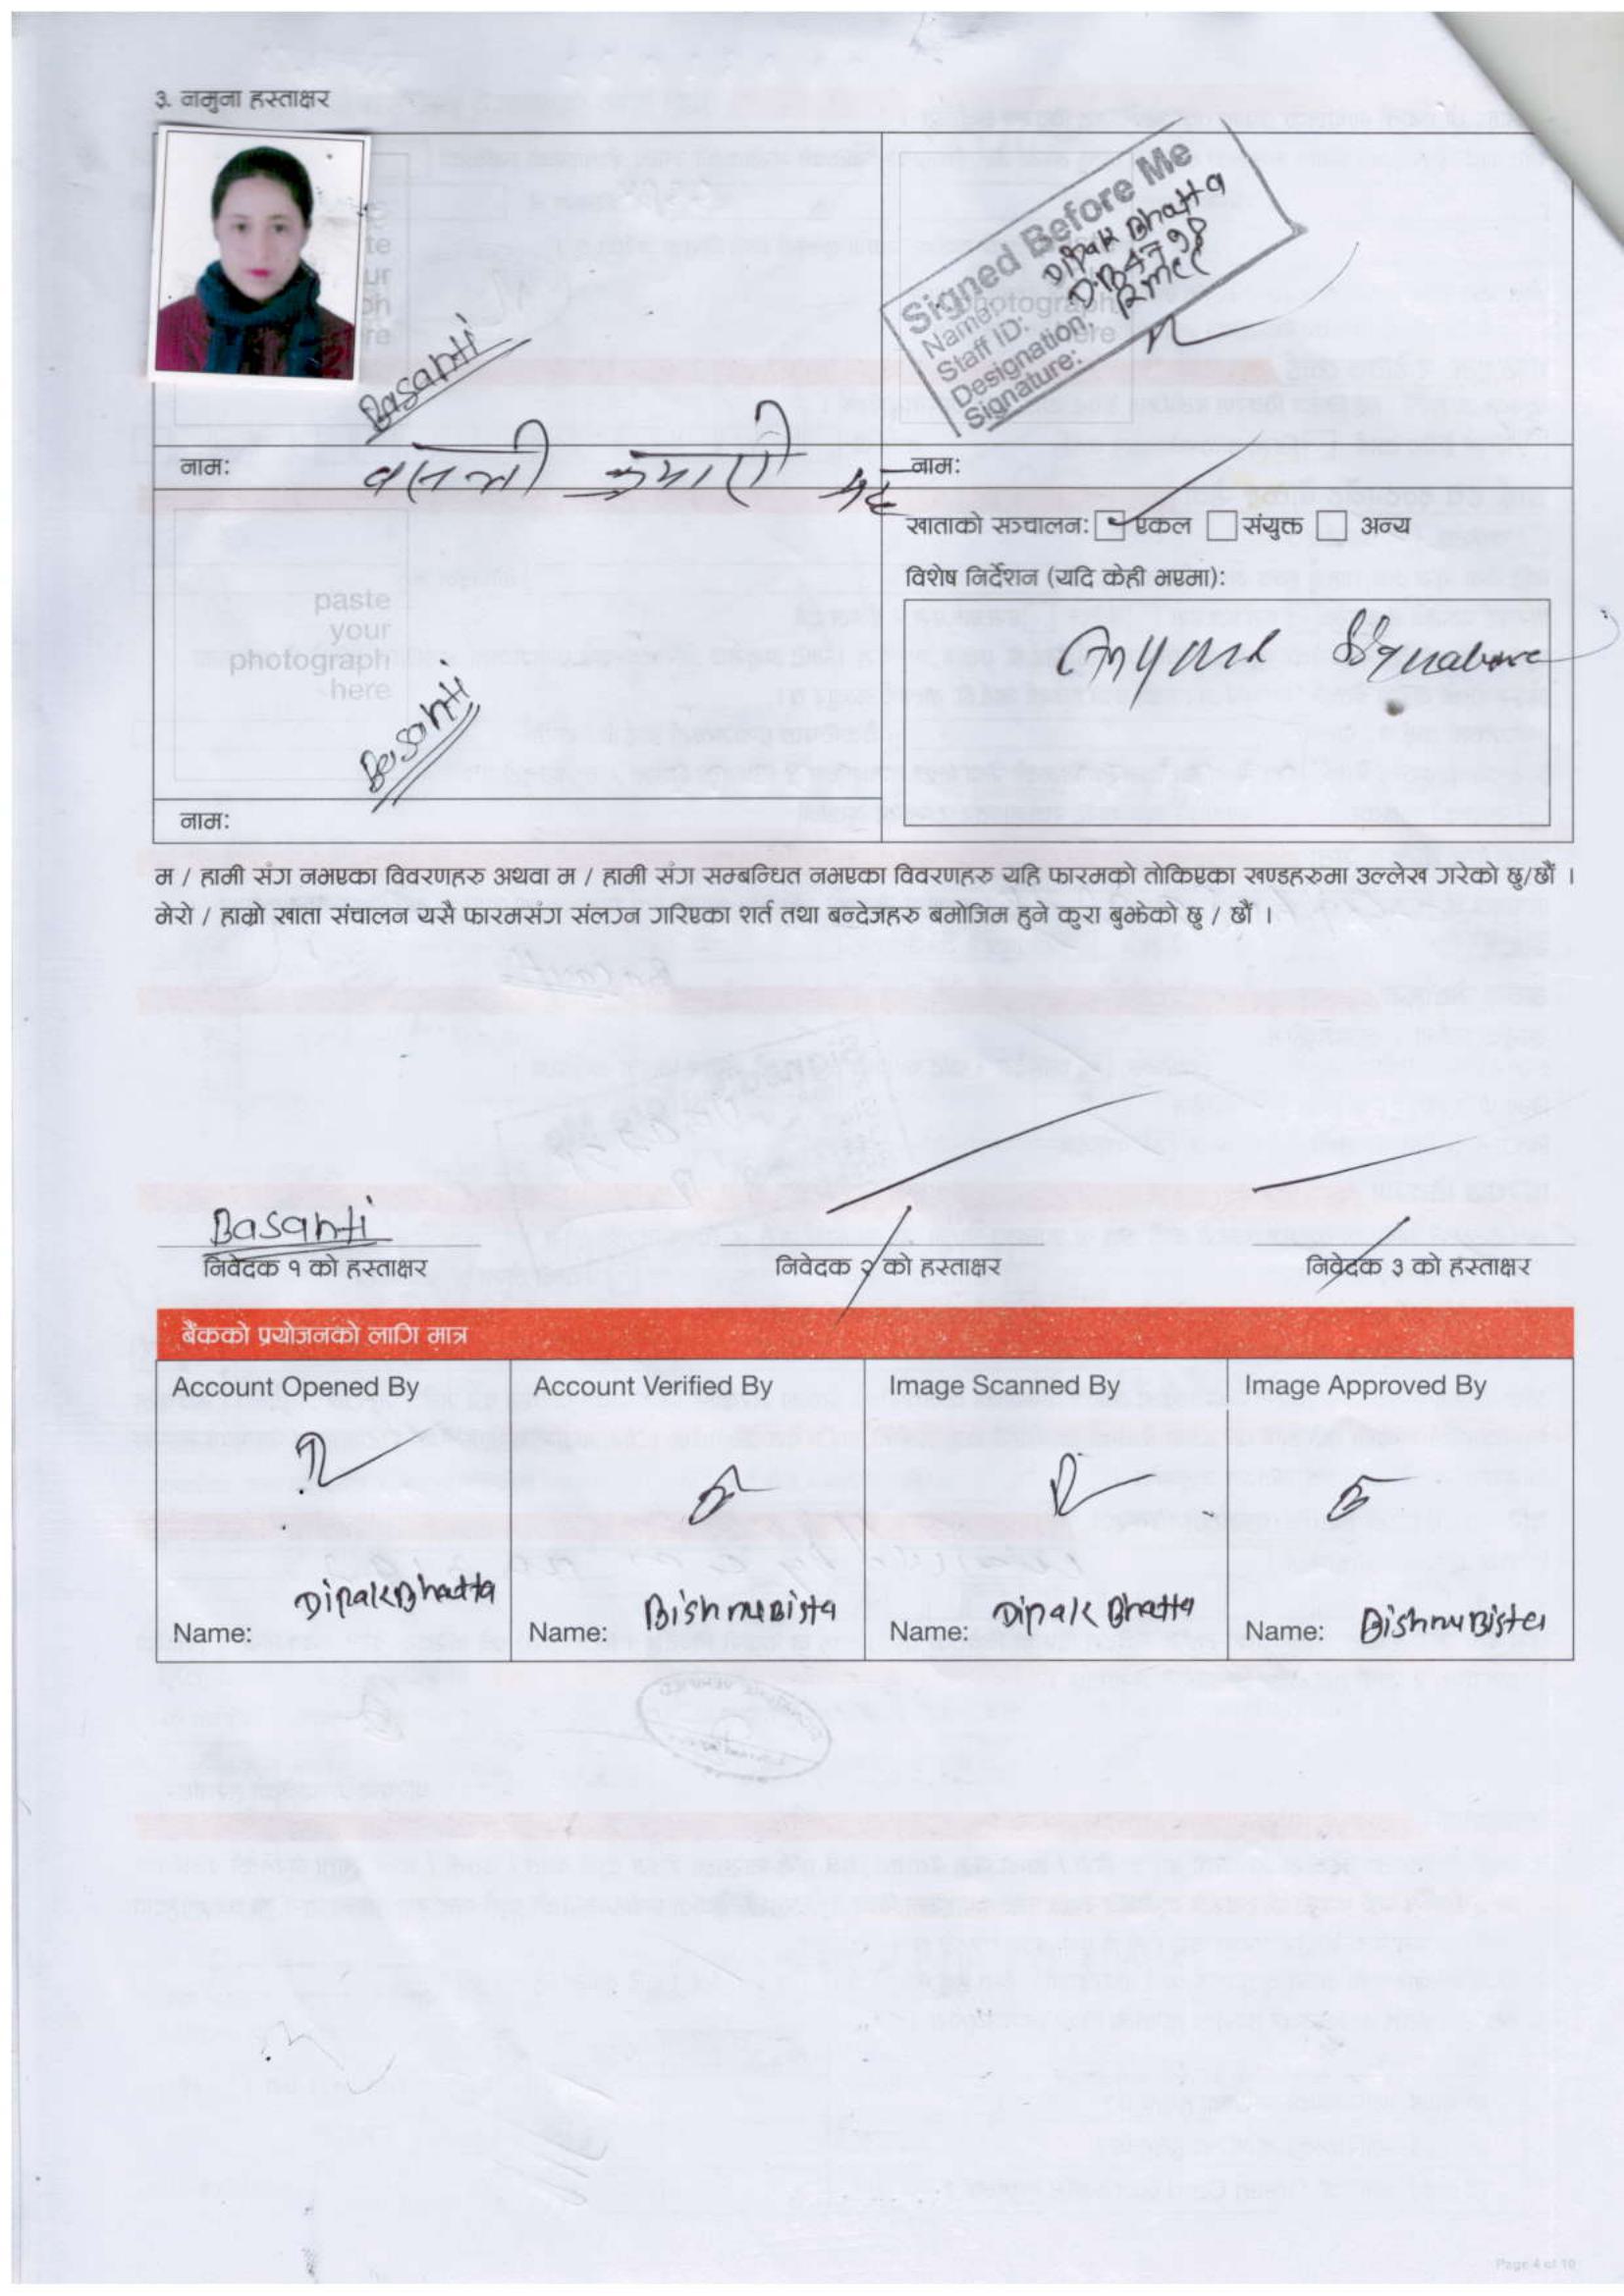 ३. नमुना हस्ताक्षर
te
ur
ph
re
Basanti
Signed Before Me
Name: Dipak Bhatta
Staff ID: DB4798
Designation:
Signature:
photograph
here
नाम:
नाम:
खाताको सञ्चालन: एकल संयुक्त अन्य
विशेष निर्देशन (यदि केही भएमा):
paste
your
photograph
here
Basanti
नाम:
म / हामी संग नभएका विवरणहरु अथवा म / हामी संग सम्बन्धित नभएका विवरणहरु यहि फारमको तोकिएका खण्डहरुमा उल्लेख गरेको छु/छौं ।
मेरो / हाम्रो खाता संचालन यसै फारमसंग संलग्न गरिएका शर्त तथा बन्देजहरु बमोजिम हुने कुरा बुझेको छु / छौं ।
Basanti
निवेदक १ को हस्ताक्षर निवेदक २ को हस्ताक्षर निवेदक ३ को हस्ताक्षर
बैंकको प्रयोजनको लागि मात्र
Account Opened By Account Verified By Image Scanned By Image Approved By
Name: Dipak Bhatta Name: Bishnu Bista Name: Dipak Bhatta Name: Bishnu Bista
Page 4 of 10